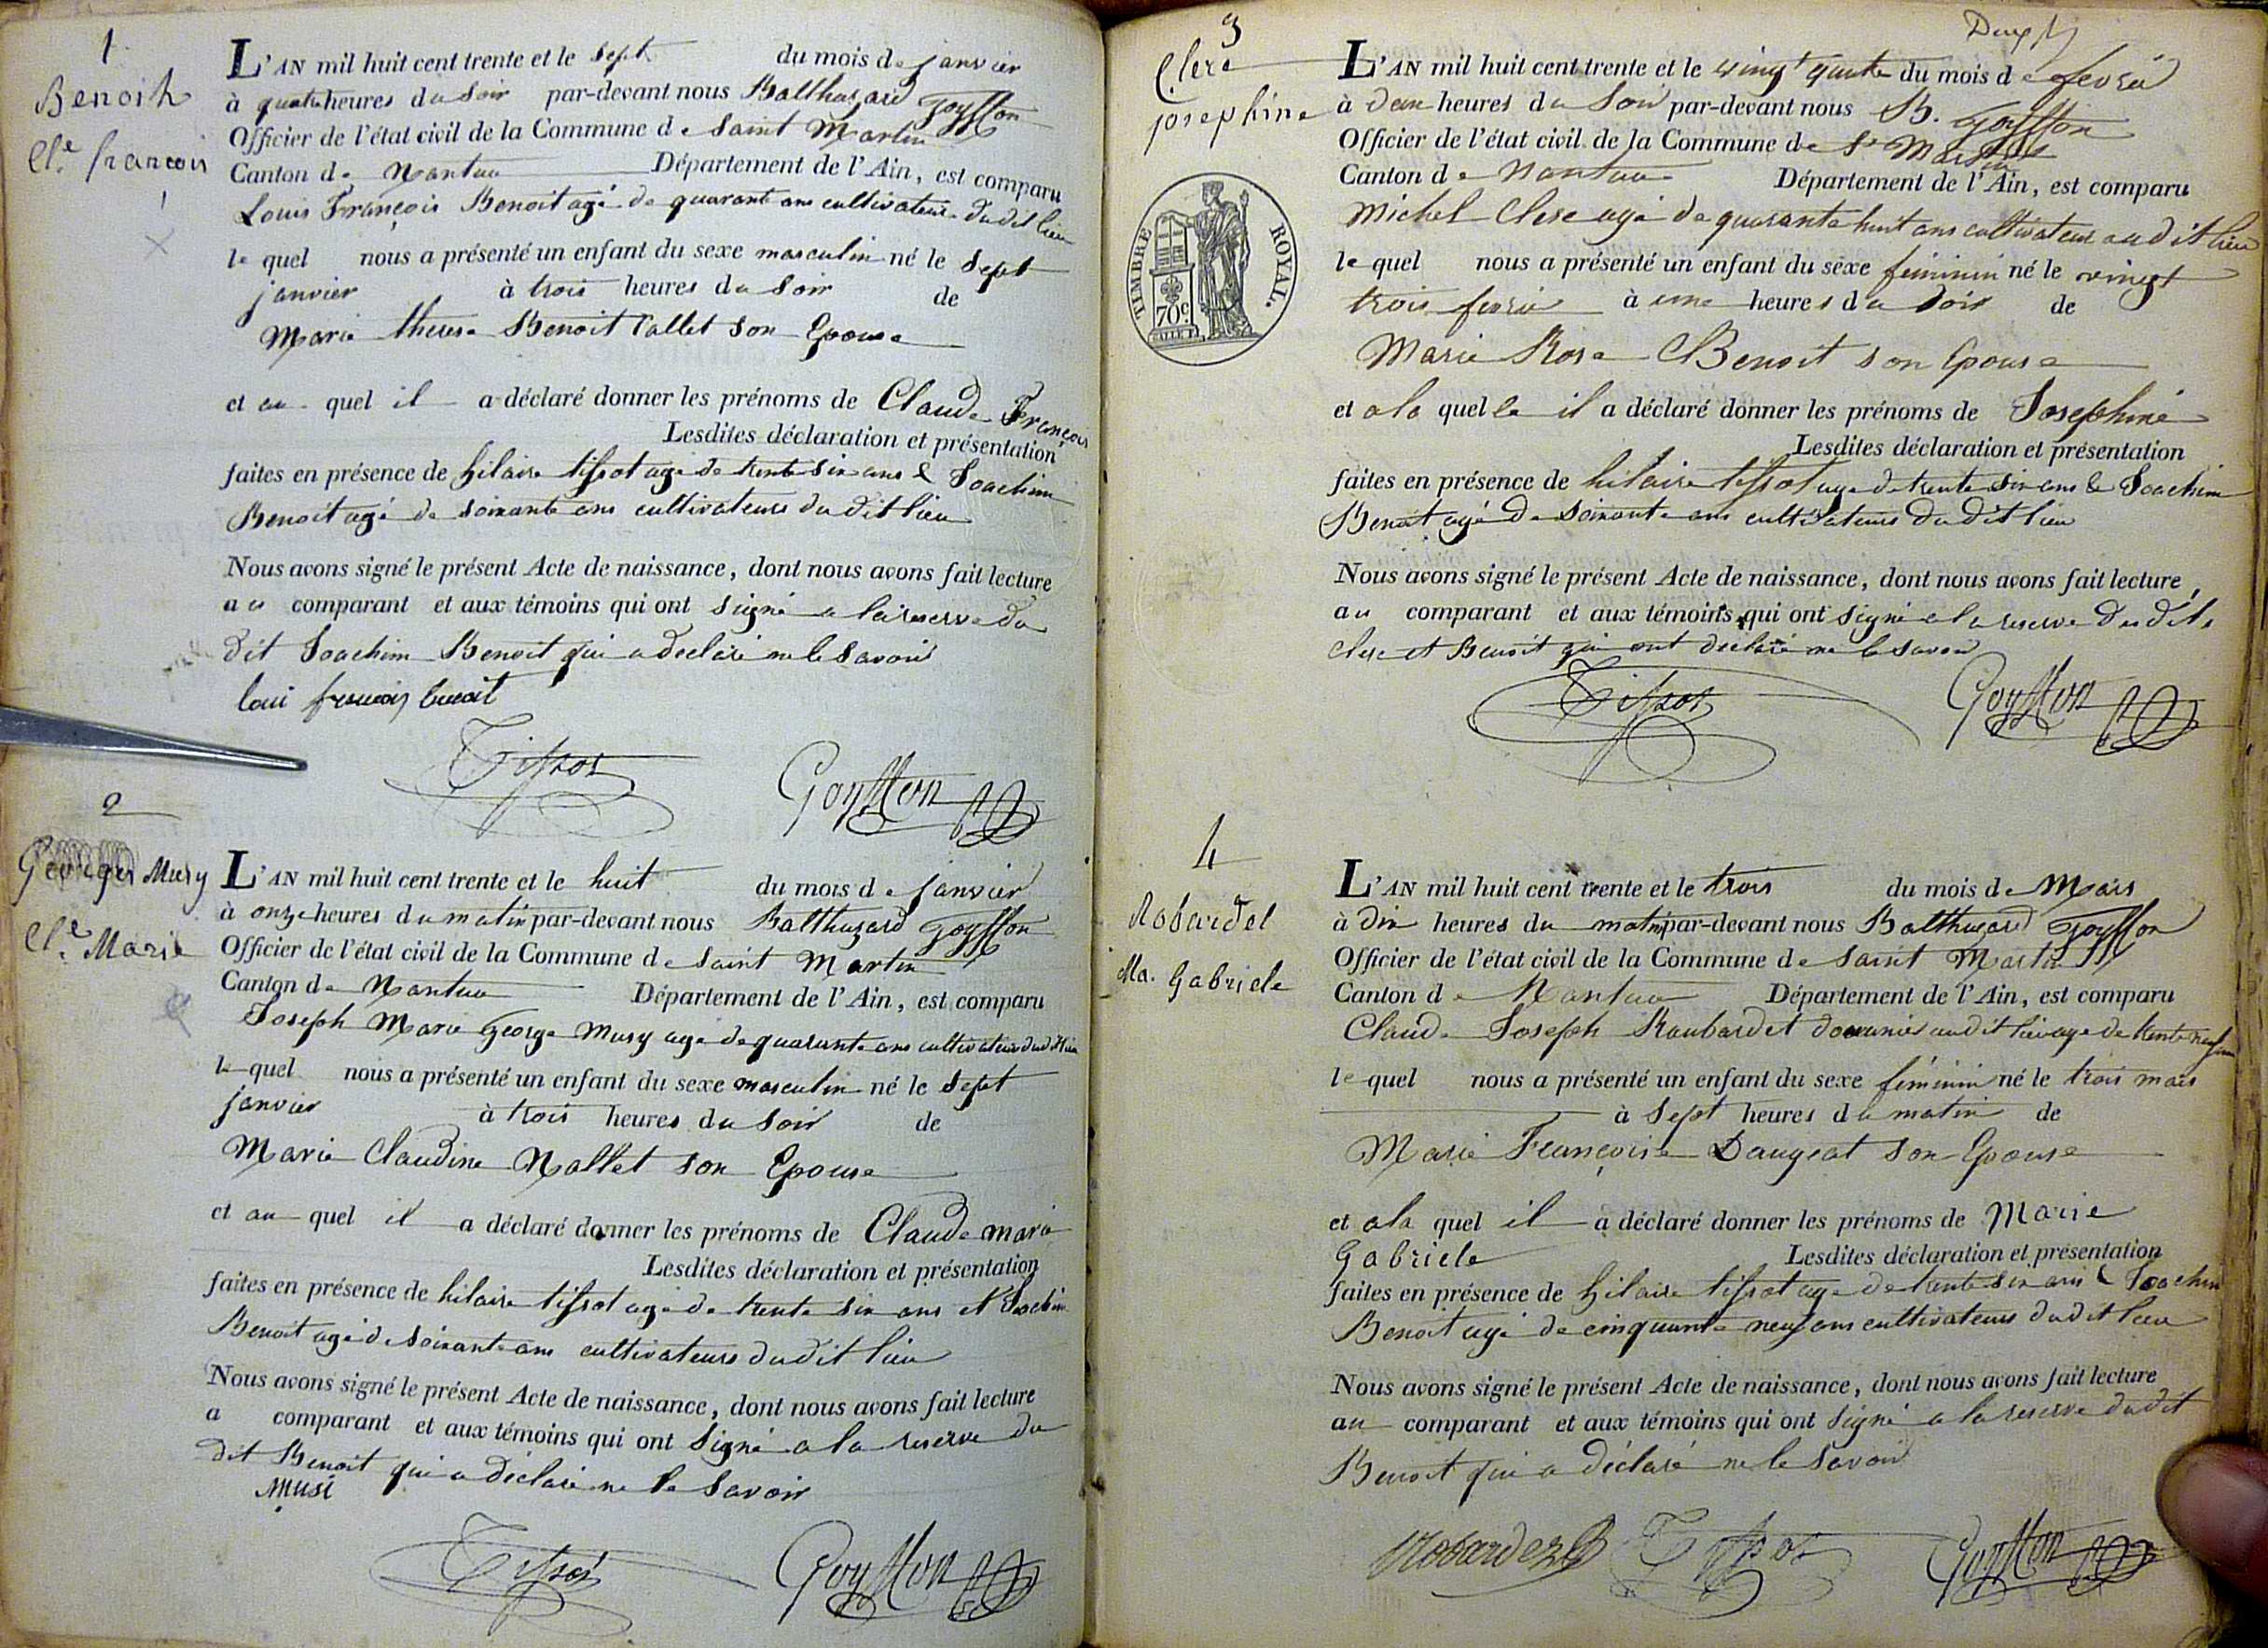 1
Benoit
Cl.e françois
L'AN mil huit cent trente et le sept du mois de janvier
à quatre heures du soir par-devant nous Balthazard Goyffon
Officier de l'état civil de la Commune de saint Martin
Canton de Nantua Département de l'Ain, est comparu
Louis François Benoit agé de quarante ans cultivateur dudit lieu
lequel nous a présenté un enfant du sexe masculin né le sept
janvier à trois heures du soir de
Marie therese Benoit son Epouse
et au quel il a déclaré donner les prénoms de Claude François
Lesdites déclaration et présentation
faites en présence de hilaire tissot agé de trente six ans & Joachim
Benoit agé de soixante ans cultivateurs dudit lieu
Nous avons signé le présent Acte de naissance, dont nous avons fait lecture
au comparant et aux témoins qui ont signé a la reserve du
dit Joachim Benoit qui a declaré ne le savoir
loui francois benoit
Tissot Goyffon
2
Georges Musy
Cl.e Marie
L'AN mil huit cent trente et le huit du mois de janvier
à onze heures du matin par-devant nous Balthazard Goyffon
Officier de l'état civil de la Commune de saint Martin
Canton de Nantua Département de l'Ain, est comparu
Joseph Marie George Musy agé de quarante ans cultivateur dudit lieu
le quel nous a présenté un enfant du sexe masculin né le sept
janvier à trois heures du soir de
Marie Claudine Nallet son Epouse
et au quel il a déclaré donner les prénoms de Claude marie
Lesdites déclaration et présentation
faites en présence de hilaire tissot agé de trente six ans et Joachim
Benoit agé de soixante ans cultivateurs dudit lieu
Nous avons signé le présent Acte de naissance, dont nous avons fait lecture
a comparant et aux témoins qui ont signé a la reserve du
dit Benoit qui a déclaré ne le savoir
Musi
Tissot Goyffon
3
Clerc
josephine
L'AN mil huit cent trente et le vingt quatre du mois de fevrié
à deux heures du soir par-devant nous B. Goyffon
Officier de l'état civil de la Commune de St Martin
Canton de Nantua Département de l'Ain, est comparu
Michel Clerc agé de quarante huit ans cultivateur audit lieu
le quel nous a présenté un enfant du sexe féminin né le vingt
trois fevrié à une heures du soir de
Marie Rose Benoit son Epouse
et a la quelle il a déclaré donner les prénoms de Josephine
Lesdites déclaration et présentation
faites en présence de hilaire tissot agé de trente six ans & Joachim
Benoit agé de soixante ans cultivateurs dudit lieu
Nous avons signé le présent Acte de naissance, dont nous avons fait lecture,
au comparant et aux témoins qui ont signé a la reserve desdits
clerc et Benoit qui ont declaré ne le savoir
Tissot Goyffon
TIMBRE ROYAL.
70c.
4
Robardel
Ma. Gabriele
L'AN mil huit cent trente et le trois du mois de Mars
à dix heures du matin par-devant nous Balthazard Goyffon
Officier de l'état civil de la Commune de saint Martin
Canton de Nantua Département de l'Ain, est comparu
Claude Joseph Roubardet douanier audit lieu agé de trente neuf ans
le quel nous a présenté un enfant du sexe féminin né le trois mars
à sept heures du matin de
Marie Françoise Daugeat son Epouse
et a la quel il a déclaré donner les prénoms de Marie
Gabriele Lesdites déclaration et présentation
faites en présence de hilaire tissot agé de trente six ans & Joachim
Benoit agé de cinquante neuf ans cultivateurs dudit lieu
Nous avons signé le présent Acte de naissance, dont nous avons fait lecture
au comparant et aux témoins qui ont signé a la reserve dudit
Benoit qui a déclaré ne le savoir
Tissot Goyffon